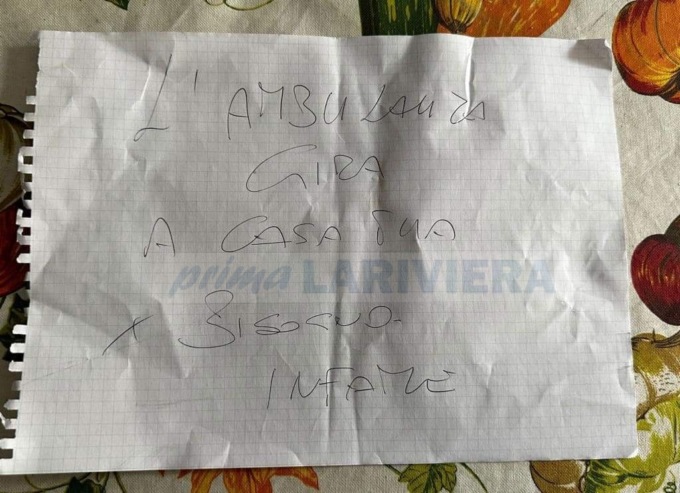 L'AMBULANZA
GIRA
A CASA TUA
prima LARIVIERA
x BISOGNO.
INFAME